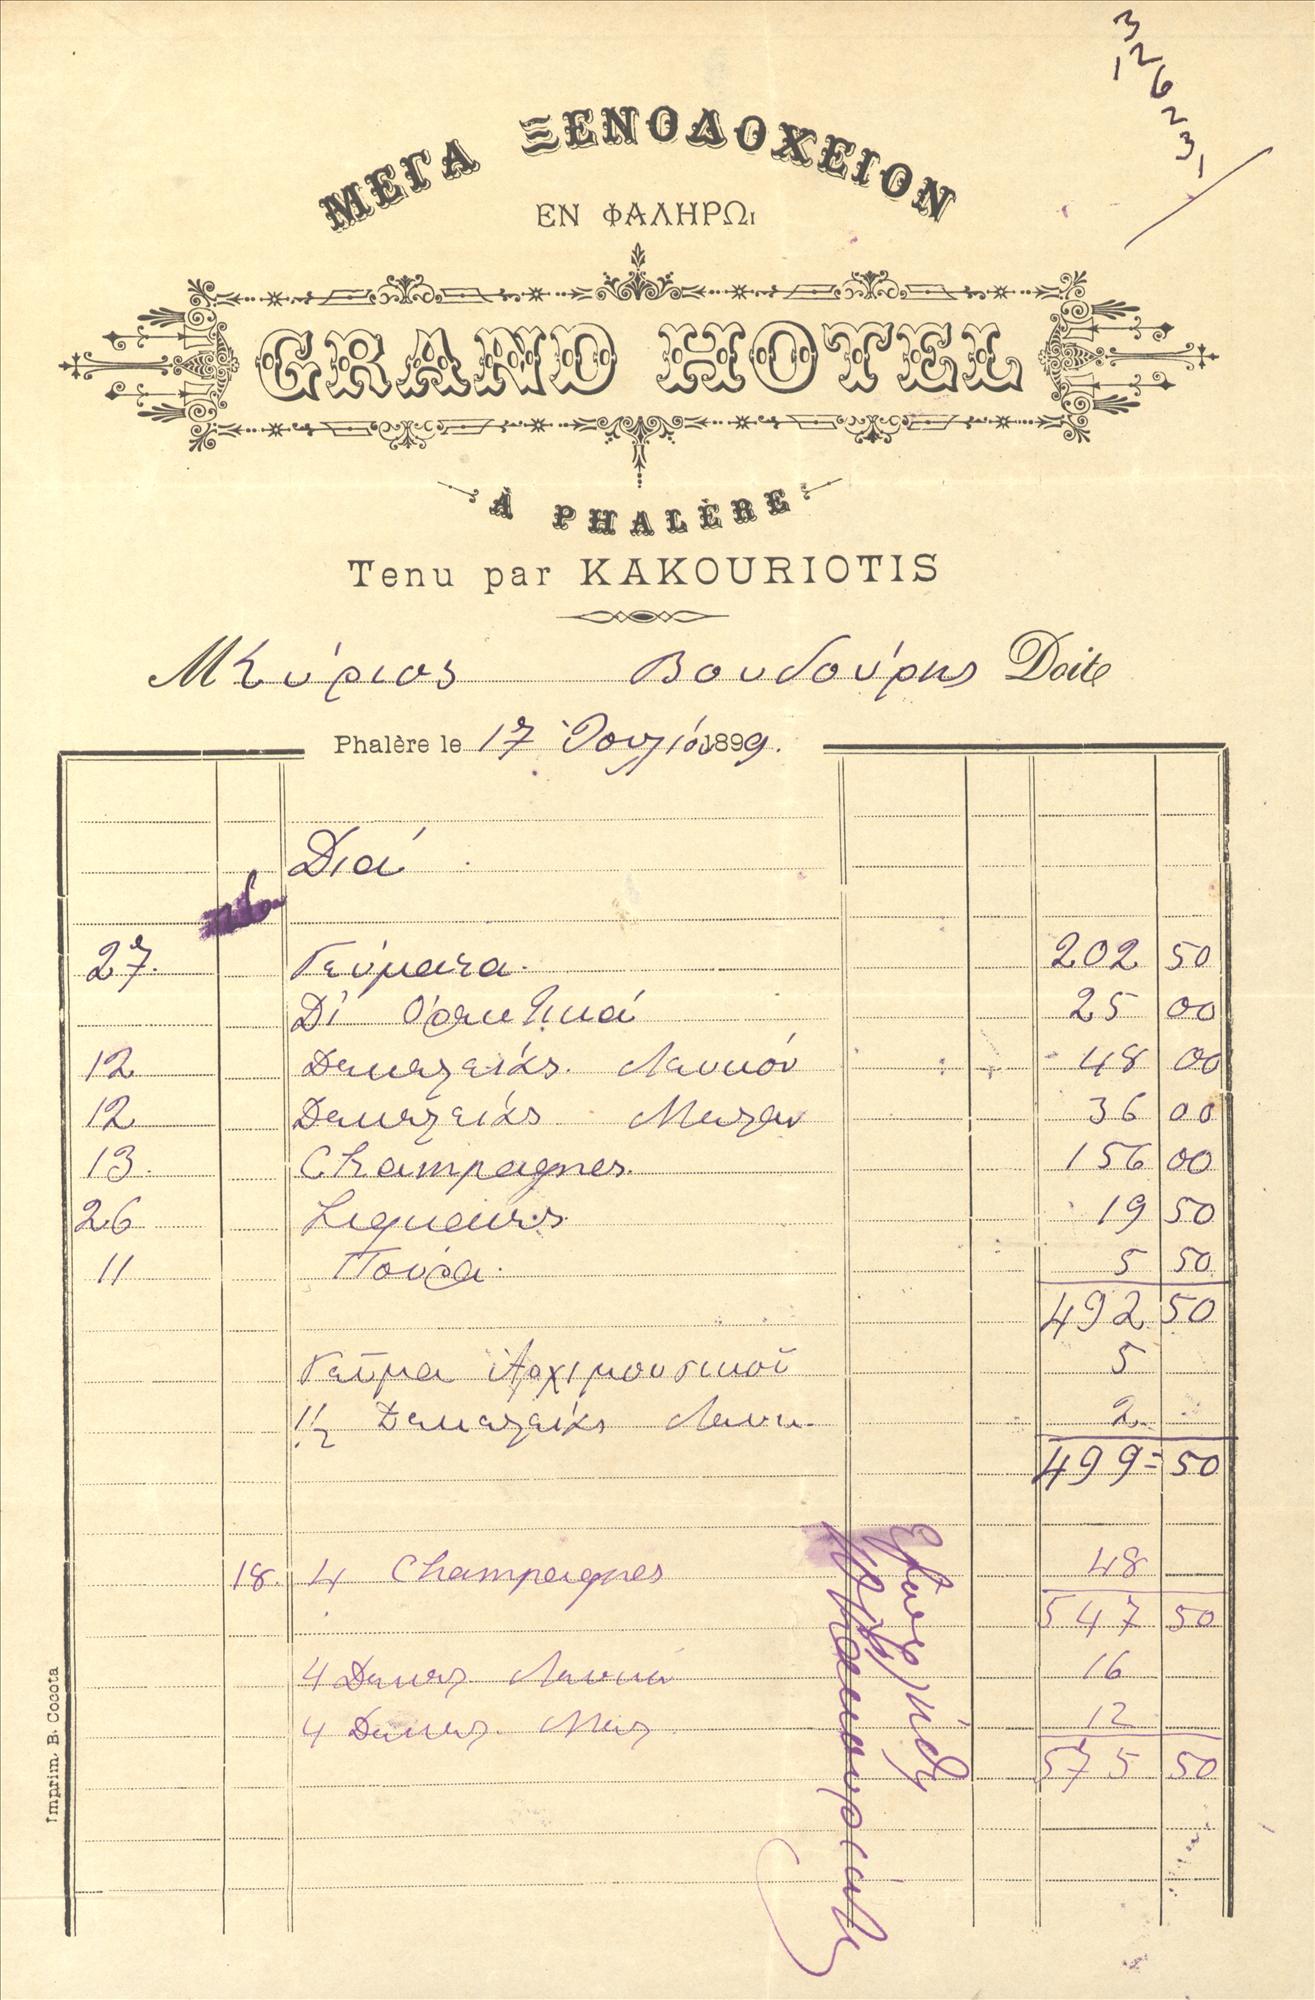 3
12
6
2
31
ΜΕΓΑ ΞΕΝΟΔΟΧΕΙΟΝ
ΕΝ ΦΑΛΗΡΩι
GRAND HOTEL
À PHALÈRE
Tenu par KAKOURIOTIS
M Κύριος Βουδούρης Doit
Phalère le 17 Ἰουλίου 1899.
Διά
27. Γεύματα. 202 50
Δι' Ορεκτικά 25 00
12 Δεκελείας Λευκόν 48 00
12 Δεκελείας Μελαν 36 00
13. Champagnes. 156 00
26 Liqueurs. 19 50
11 Πούρα. 5 50
492 50
Γεῦμα Ἀρχιμουσικοῦ 5
1/2 Δεκελείας Λευκ. 2
499=50
18. 4 Champagnes 48
547 50
4 Δεκελ. Λευκά 16
4 Δεκελ. Μελ 12
575 50
Imprim. B. Cocota